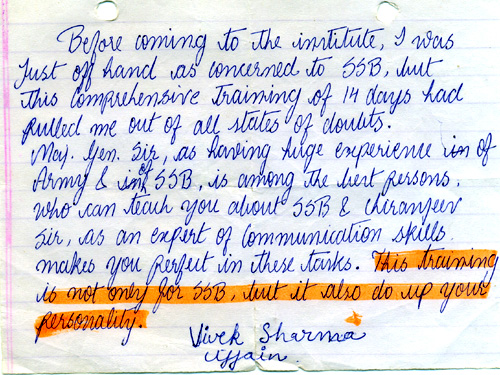 Before coming to the institute, I was
Just off hand as concerned to SSB, but
this comprehensive training of 14 days had
pulled me out of all states of doubts.
Maj. Gen. Sir, as having huge experience in of
Army & in of SSB, is among the best persons,
who can teach you about SSB & Chiranjeev
Sir, as an expert of Communication skills.
makes you perfect in these tasks. This training
is not only for SSB, but it also do up your
personality.
Vivek Sharma
Ujjain.